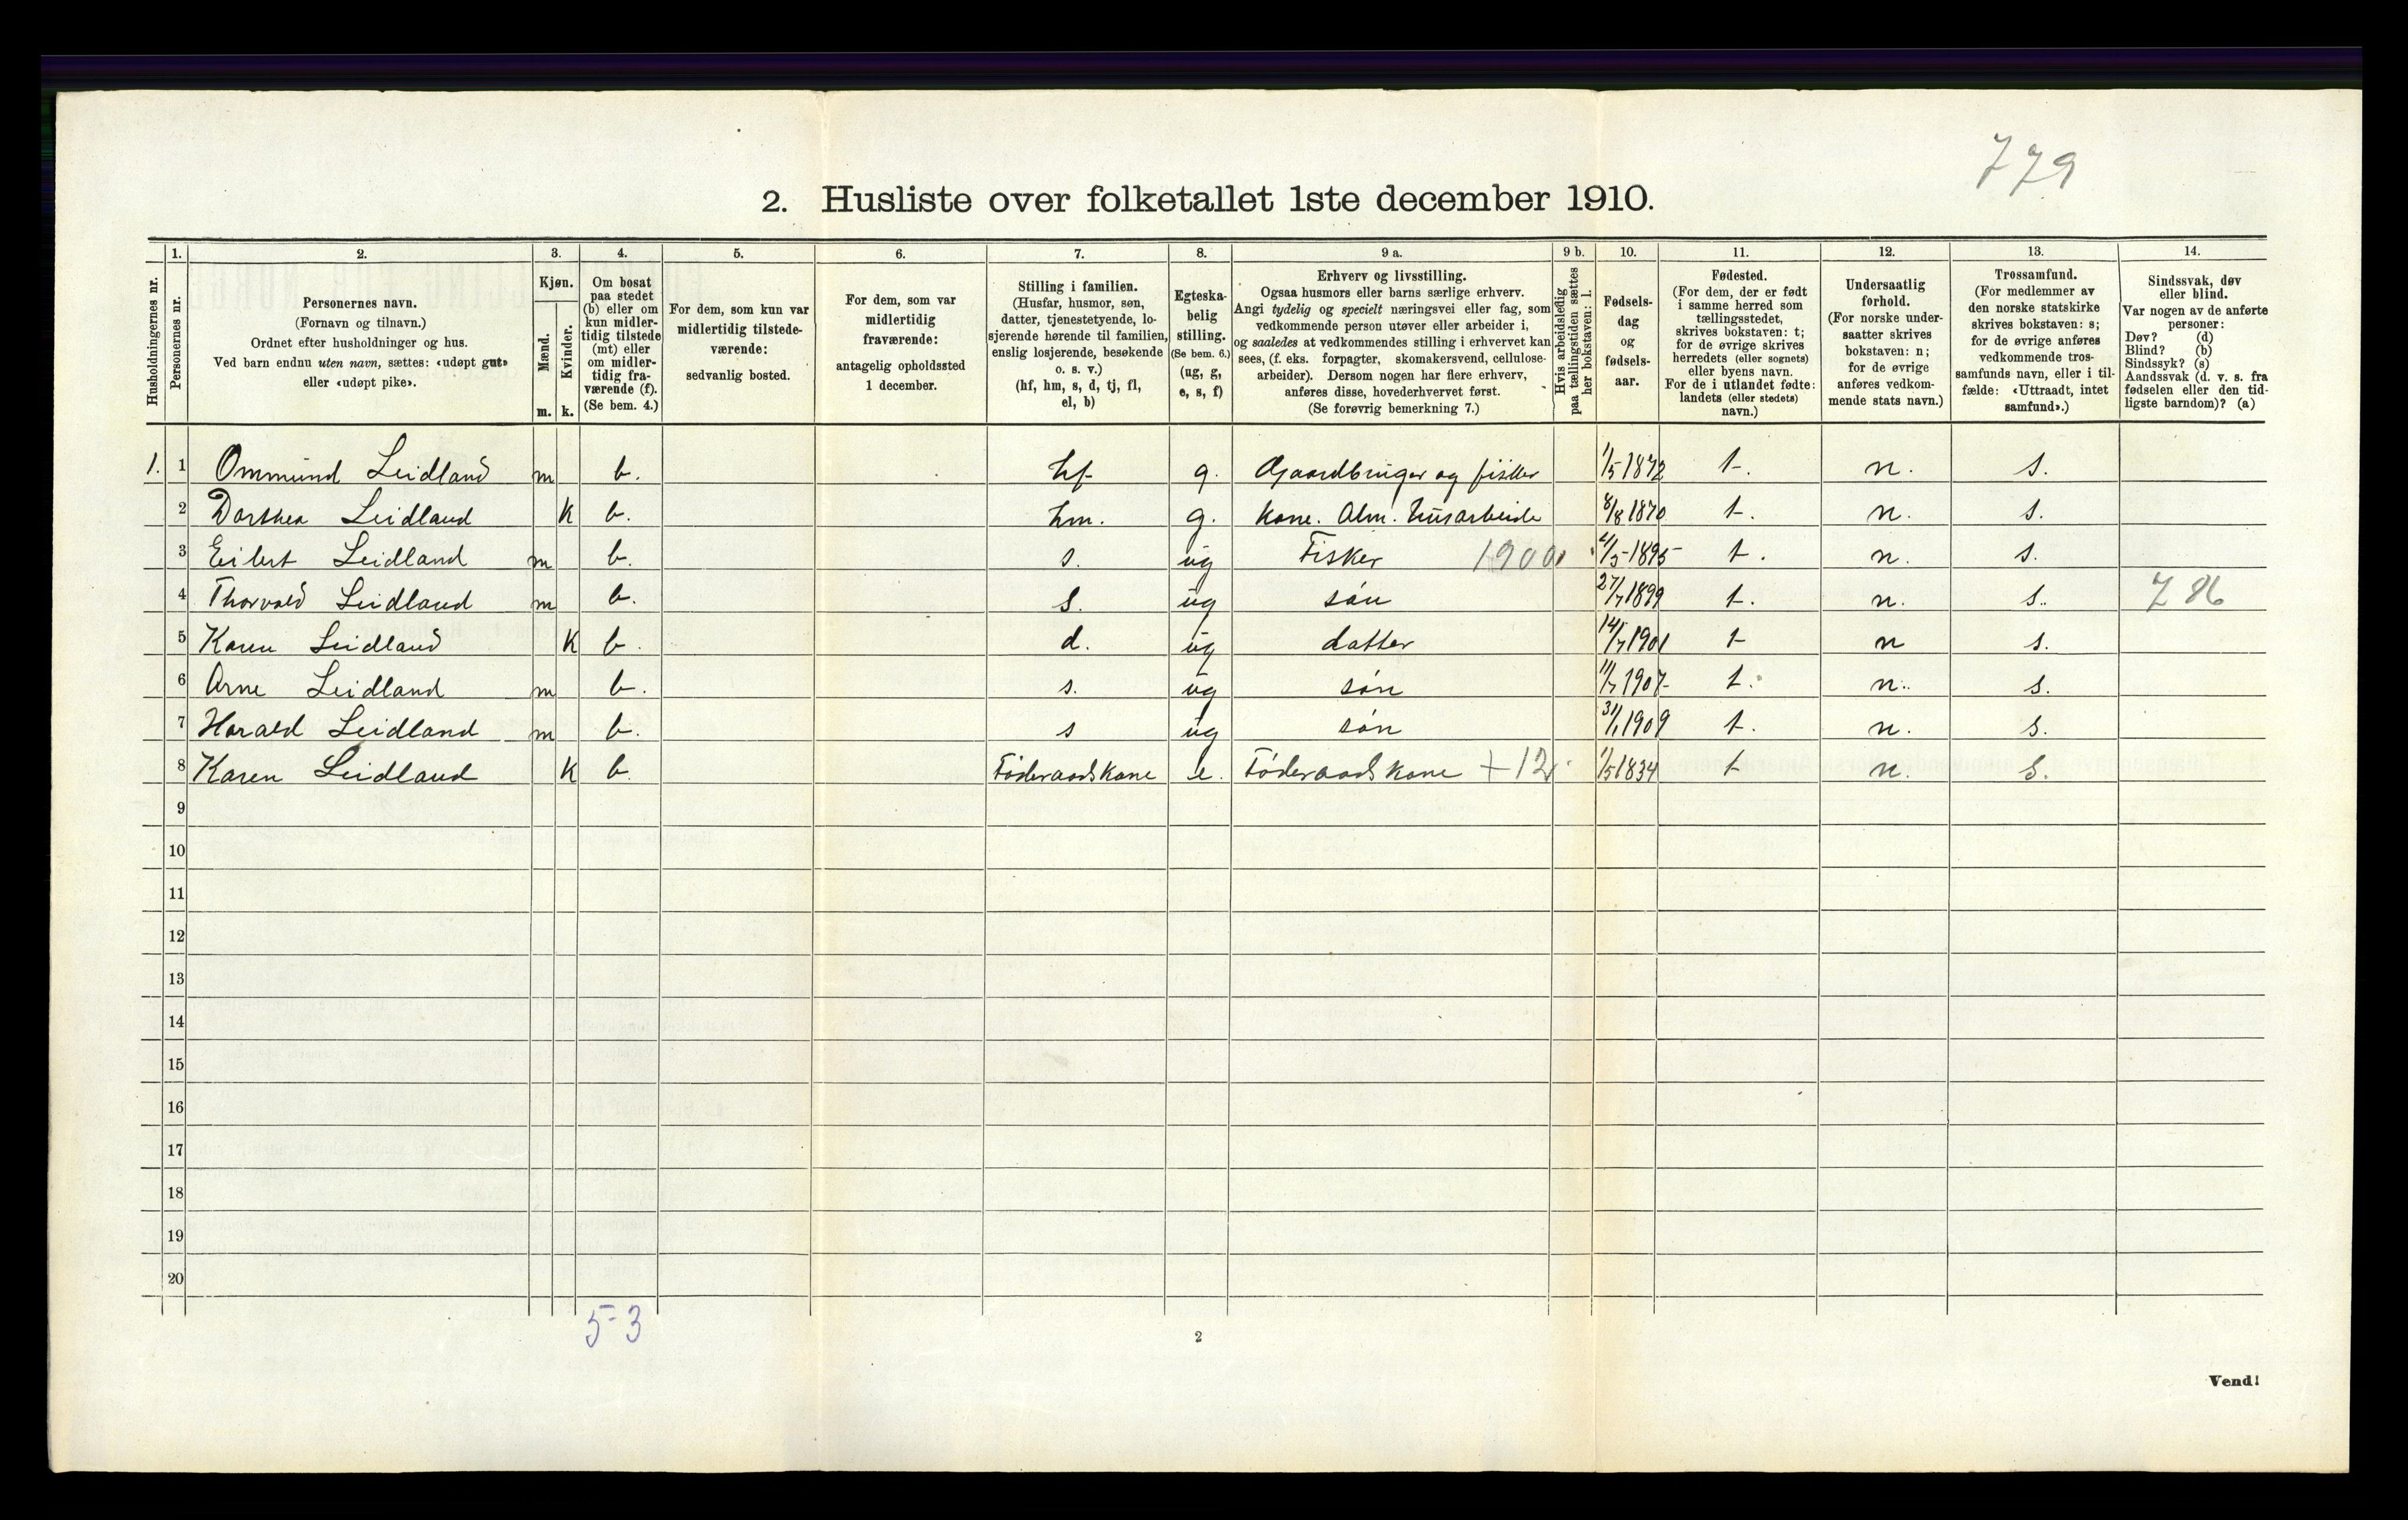 779
2. Husliste over folketallet 1ste december 1910.
Husholdningernes nr.
1. Personernes nr.
2. Personernes navn. (Fornavn og tilnavn.) Ordnet efter husholdninger og hus. Ved barn endnu uten navn, sættes: «udøpt gut» eller «udøpt pike».
3. Kjøn. Mænd. m. Kvinder. k.
4. Om bosat paa stedet (b) eller om kun midlertidig tilstede (mt) eller om midlertidig fraværende (f). (Se bem. 4.)
5. For dem, som kun var midlertidig tilstedeværende: sedvanlig bosted.
6. For dem, som var midlertidig fraværende: antagelig opholdssted 1 december.
7. Stilling i familien. (Husfar, husmor, søn, datter, tjenestetyende, losjerende hørende til familien, enslig losjerende, besøkende o. s. v.) (hf, hm, s, d, tj, fl, el, b)
8. Egteskabelig stilling. (Se bem. 6.) (ug, g, e, s, f)
9 a. Erhverv og livsstilling. Ogsaa husmors eller barns særlige erhverv. Angi tydelig og specielt næringsvei eller fag, som vedkommende person utøver eller arbeider i, og saaledes at vedkommendes stilling i erhvervet kan sees, (f. eks. forpagter, skomakersvend, cellulosearbeider). Dersom nogen har flere erhverv, anføres disse, hovederhvervet først. (Se forøvrig bemerkning 7.)
9 b. Hvis arbeidsledig paa tællingstiden sættes her bokstaven: l.
10. Fødselsdag og fødselsaar.
11. Fødested. (For dem, der er født i samme herred som tællingsstedet, skrives bokstaven: t; for de øvrige skrives herredets (eller sognets) eller byens navn. For de i utlandet fødte: landets (eller stedets) navn.)
12. Undersaatlig forhold. (For norske undersaatter skrives bokstaven: n; for de øvrige anføres vedkommende stats navn.)
13. Trossamfund. (For medlemmer av den norske statskirke skrives bokstaven: s; for de øvrige anføres vedkommende trossamfunds navn, eller i tilfælde: «Uttraadt, intet samfund».)
14. Sindssvak, døv eller blind. Var nogen av de anførte personer: Døv? (d) Blind? (b) Sindssyk? (s) Aandssvak (d. v. s. fra fødselen eller den tidligste barndom)? (a)
1. 1 Ommund Leidland m b. hf g. Gaardbruger og fisker 1/5 1872 t. n. s.
2 Dorthea Leidland k b. hm. g. kone. Alm. husarbeide 8/8 1870 t. n. s.
3 Eilert Leidland m b. s. ug Fisker 1900 4/5 1895 t. n. s.
4 Thorvald Leidland m b. s. ug søn 27/7 1899 t. n. s. 786
5 Karen Leidland k b. d. ug datter 14/7 1901 t n s.
6 Arne Leidland m b. s. ug søn 11/7 1907 t. n. s.
7 Harald Leidland m b. s ug søn 31/1 1909 t. n. s.
8 Karen Leidland k b. Føderaadskone e. Føderaadskone +12 1/5 1834 t n. s.
9
10
11
12
13
14
15
16
17
18
19
20
5-3
2
Vend!